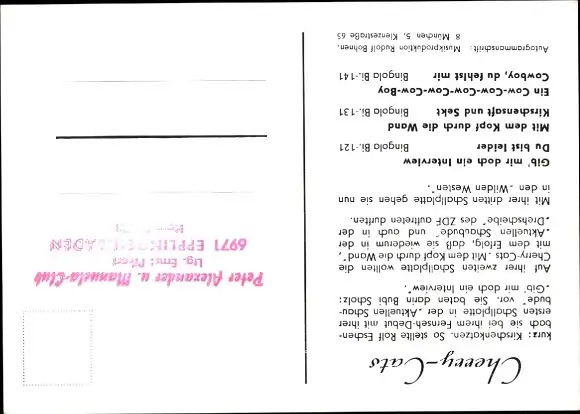 Cherry-Cats
kurz: Kirschenkatzen. So stellte Rolf Eschen-
bach sie bei ihrem Fernseh-Debut mit ihrer
ersten Schallplatte in der „Aktuellen Schau-
bude" vor. Sie baten darin Bubi Scholz:
„Gib' mir doch ein Interview".
Auf ihrer zweiten Schallplatte wollten die
Cherry-Cats „Mit dem Kopf durch die Wand",
mit dem Erfolg, daß sie wiederum in der
„Aktuellen Schaubude" und auch in der
„Drehscheibe" des ZDF auftreten durften.
Mit ihrer dritten Schallplatte gehen sie nun
in den „Wilden Westen".
Gib' mir doch ein Interview
Du bist leider Bingola Bi.-121
Mit dem Kopf durch die Wand
Kirschensaft und Sekt Bingola Bi.-131
Ein Cow-Cow-Cow-Cow-Cow-Boy
Cowboy, du fehlst mir Bingola Bi.-141
Autogrammanschrift: Musikproduktion Rudolf Bohnen
8 München 5, Klenzestraße 65
Peter Alexander u. Manuela-Club
Ltg. Ernst
6971 EPPLINGEN/BADEN